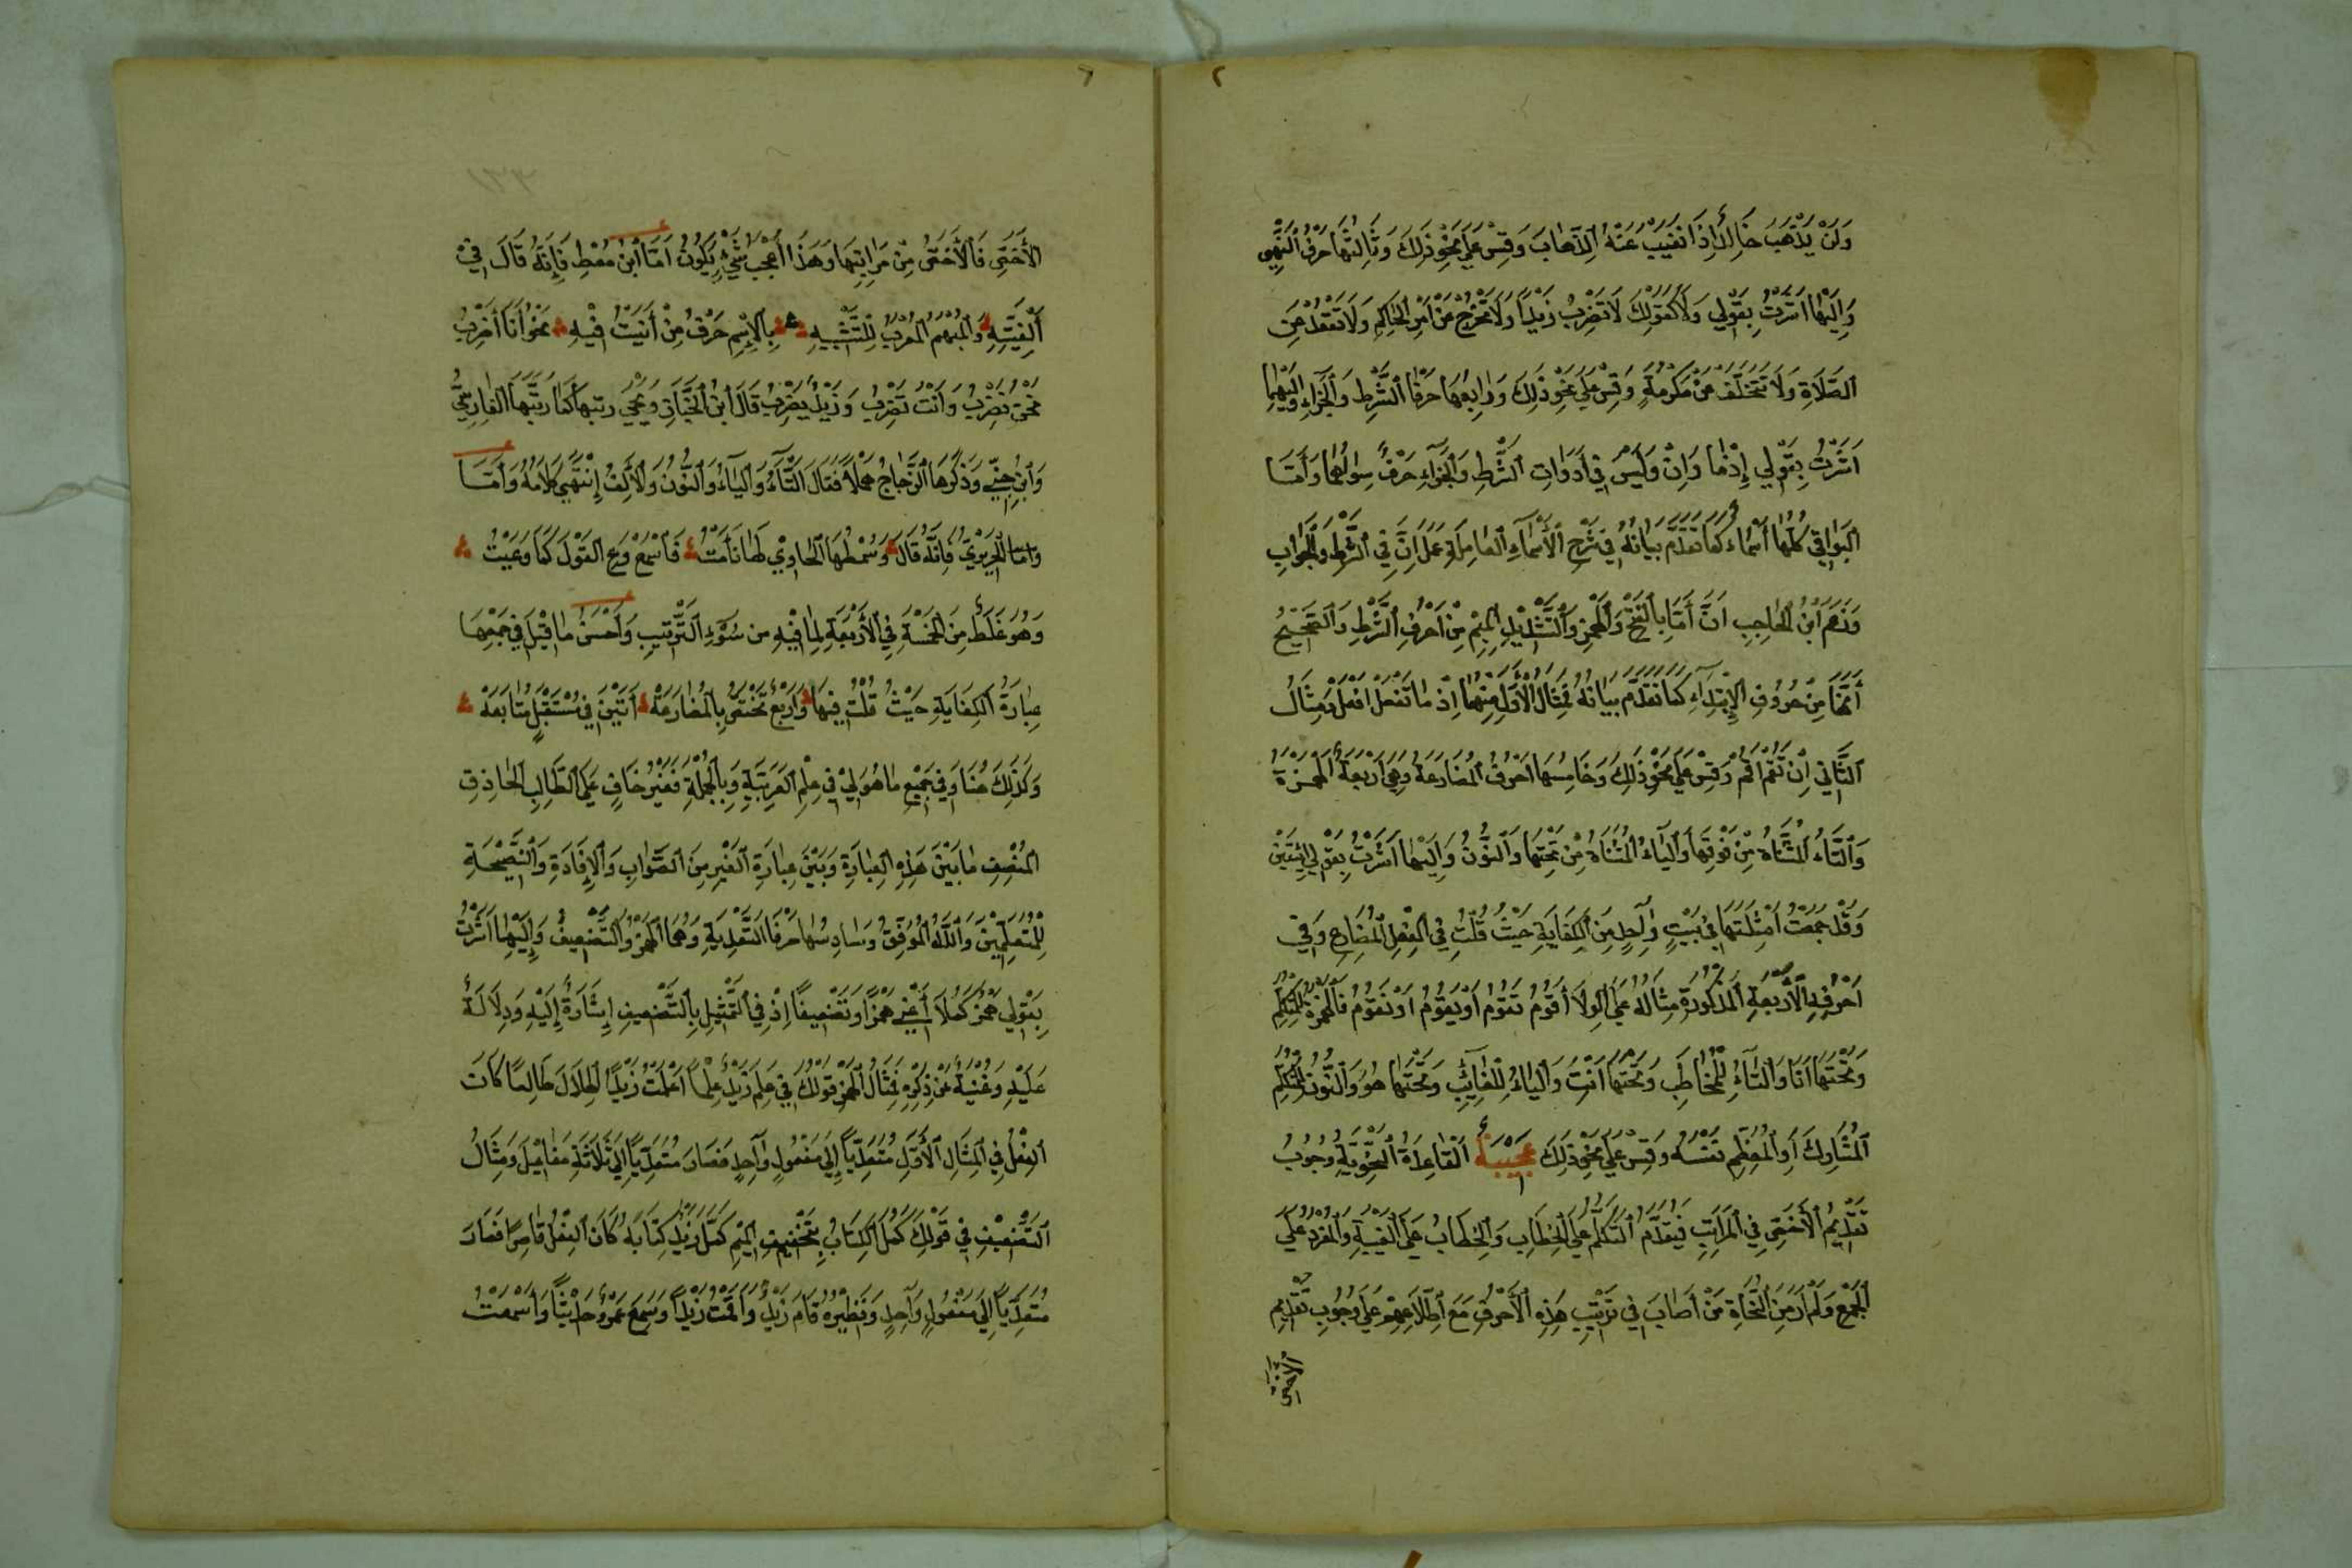 وَلَنْ يَذْهَبَ خَالِدٌ إِذَا نَفَيْتَ عَنْهُ الذَّهَابَ وَقِسْ عَلَى نَحْوِ ذَلِكَ وَثَالِثُهَا حَرْفُ النَّهْيِ
وَإِلَيْهَا أَشَرْتُ بِقَوْلِي وَلَا كَقَوْلِكَ لَا تَضْرِبْ زَيْدًا وَلَا تَخْرُجْ مِنْ أَمْرِ الْحَاكِمِ وَلَا تَقْعُدْ عَنِ
الصَّلَاةِ وَلَا تَتَخَلَّفْ عَنْ مَكْرُمَةٍ وَقِسْ عَلَى نَحْوِ ذَلِكَ وَرَابِعُهَا حَرْفَا الشَّرْطِ وَالْجَزَاءِ وَإِلَيْهِمَا
أَشَرْتُ بِقَوْلِي إِذْمَا وَإِنْ وَلَيْسَ فِي أَدَوَاتِ الشَّرْطِ وَالْجَزَاءِ حَرْفٌ سِوَاهُمَا وَأَمَّا
الْبَوَاقِي كُلُّهَا أَسْمَاءٌ كَمَا تَقَدَّمَ بَيَانُهُ فِي شَرْحِ الْأَسْمَاءِ الْعَامِلَةِ عَمَلَ إِنْ فِي الشَّرْطِ وَالْجَوَابِ
وَزَعَمَ ابْنُ الْحَاجِبِ أَنَّ أَمَّا بِالْفَتْحِ وَالْهَمْزِ وَالتَّشْدِيدِ الْمِيْمِ مِنْ أَحْرُفِ الشَّرْطِ وَالصَّحِيْحُ
أَنَّهَا مِنْ حُرُوفِ الْإِبْتِدَاءِ كَمَا تَقَدَّمَ بَيَانُهُ فَمِثَالُ الْأَوَّلِ مِنْهُمَا إِذْ مَا تَفْعَلْ أَفْعَلْ وَمِثَالُ
الثَّانِي إِنْ تَقُمْ أَقُمْ وَقِسْ عَلَى نَحْوِ ذَلِكَ وَخَامِسُهَا أَحْرُفُ الْمُضَارَعَةِ وَهِيَ أَرْبَعَةٌ الْهَمْزَةُ
وَالتَّاءُ الْمُثَنَّاةُ مِنْ فَوْقِهَا وَالْيَاءُ الْمُثَنَّاةُ مِنْ تَحْتِهَا وَالنُّونُ وَإِلَيْهَا أَشَرْتُ بِقَوْلِي أَتَيْنَ
وَقَدْ جَمَعْتُ أَمْثِلَتَهَا فِي بَيْتٍ وَاحِدٍ مِنَ الْكِفَايَةِ حَيْثُ قُلْتُ فِي الْفِعْلِ الْمُضَارِعِ وَفِي
أَحْرُفِهِ الْأَرْبَعَةِ الْمَذْكُورَةِ مِثَالُهُ عَلَى الْوِلَا أَقُومُ تَقُومُ أَوْ يَقُومُ أَوْ نَقُومُ فَالْهَمْزَةُ لِلْمُتَكَلِّمِ
وَتَحْتَهَا أَنَا وَالتَّاءُ لِلْمُخَاطَبِ وَتَحْتَهَا أَنْتَ وَالْيَاءُ لِلْغَائِبِ وَتَحْتَهَا هُوَ وَالنُّونُ لِلْمُتَكَلِّمِ
الْمُشَارِكَ أَوِ الْمُعَظِّمِ نَفْسَهُ وَقِسْ عَلَى نَحْوِ ذَلِكَ عَجِيْبَةٌ الْقَاعِدَةُ النَّحْوِيَّةُ وُجُوبُ
تَقْدِيمُ الْأَخَصِّ فِي الْمَرَاتِبِ فَيُقَدَّمُ التَّكَلُّمُ عَلَى الْخِطَابِ وَالْخِطَابُ عَلَى الْغَيْبَةِ وَالْمُفْرَدُ عَلَى
الْجَمْعِ وَلَمْ أَرَ مِنَ النُّحَاةِ مَنْ أَصَابَ فِي تَرْتِيْبِ هَذِهِ الْأَحْرُفِ مَعَ اطِّلَاعِهِمْ عَلَى وُجُوبِ تَقْدِيمِ
الْأَخَصِّ
الْأَخَصِّ فَالْأَخَصِّ مِنْ مَرَاتِبِهَا وَهَذَا أَعْجَبُ شَيْءٍ يَكُونُ أَمَّا ابْنُ مُعْطٍ فَإِنَّهُ قَالَ فِي
أَلْفِيَّتِهِ وَالْمُبْهَمُ الْمُعْرَبُ لِلتَّشْبِيهِ بِالْإِسْمِ حَرْفٌ مِنْ أَنَيْتُ فِيْهِ نَحْوُ أَنَا أَضْرِبُ
نَحْنُ نَضْرِبُ وَأَنْتَ تَضْرِبُ وَزَيْدٌ يَضْرِبُ قَالَ ابْنُ الْخَبَّازِ وَيَحْيَى رتبها كَمَا رَتَّبَهَا الْفَارِسِيُّ
وَابْنُ جِنِّي وَذَكَرَهَا الزَّجَّاجُ مُهْمَلًا فَقَالَ التَّاءُ وَالْيَاءُ وَالنُّونُ وَالْأَلِفُ إِنْتَهَى كَلَامُهُ وَأَمَّا
وَأَمَّا الْحَرِيْرِيُّ فَإِنَّهُ قَالَ وَسُمْطُهَا الْحَاوِي لَهَا نَأَيْتُ فَاسْمَعْ وَعِ الْقَوْلَ كَمَا وَعَيْتُ
وَهُوَ غَلَطٌ مِنَ الْخَمْسَةِ فِي الْأَرْبَعَةِ لِمَا فِيْهِ مِنْ سُوْءِ التَّرْتِيبِ وَأَحْسَنُ مَا قِيْلَ فِي جَمْعِهَا
عِبَارَةُ الْكِفَايَةِ حَيْثُ قُلْتُ فِيهَا وَأَرْبَعٌ تَخْتَصُّ بِالْمُضَارَعَهْ أَتَيْنَ فِي مُسْتَقْبَلٍ مُتَابَعَهْ
وَكَذَلِكَ هُنَا وَفِي جَمِيْعِ مَا هُوَ لِيْ فِي عِلْمِ الْعَرَبِيَّةِ وَبِالْجُمْلَةِ فَغَيْرُ خَافٍ عَلَى الطَّالِبِ الْحَاذِقِ
الْمُنْصِفِ مَا بَيْنَ هَذِهِ الْعِبَارَةِ وَبَيْنَ عِبَارَةِ الْغَيْرِ مِنَ الصَّوَابِ وَالْإِفَادَةِ وَالنَّصِيْحَةِ
لِلْمُتَعَلِّمِيْنَ وَاللَّهُ الْمُوَفِّقُ وَسَادِسُهَا حَرْفَا التَّعْدِيَةِ وَهُمَا الْهَمْزُ وَالتَّضْعِيفُ وَإِلَيْهِمَا أَشَرْتُ
بِقَوْلِي هَمْزٌ كَمَّلَا أَعْنِي هَمْزًا وَتَضْعِيفًا إِذْ فِي التَّمْثِيلِ بِالتَّضْعِيفِ إِشَارَةٌ إِلَيْهِ وَدِلَالَةٌ
عَلَيْهِ وَغُنْيَةٌ عَنْ ذِكْرِهِ فَمِثَالُ الْهَمْزِ قَوْلُكَ فِي عَلِمَ زَيْدٌ عِلْمًا أَعْلَمْتُ زَيْدًا الْهِلَالَ طَالِعًا كَانَ
الْفِعْلُ فِي الْمِثَالِ الْأَوَّلِ مُتَعَدِّيًا إِلَى مَفْعُولٍ وَاحِدٍ فَصَارَ مُتَعَدِّيًا إِلَى ثَلَاثَةِ مَفَاعِيْلَ وَمِثَالُ
التَّضْعِيْفِ فِي قَوْلِكَ كَمَلَ الْكِتَابُ بِتَخْفِيفِ الْمِيْمِ كَمَّلَ زَيْدٌ كِتَابَهُ كَانَ الْفِعْلُ قَاصِرًا فَصَارَ
مُتَعَدِّيًا إِلَى مَفْعُولٍ وَاحِدٍ وَنَظِيْرُهُ قَامَ زَيْدٌ وَأَقَمْتُ زَيْدًا وَسَمِعَ عَمْرٌو حَدِيْثًا وَأَسْمَعْتُ